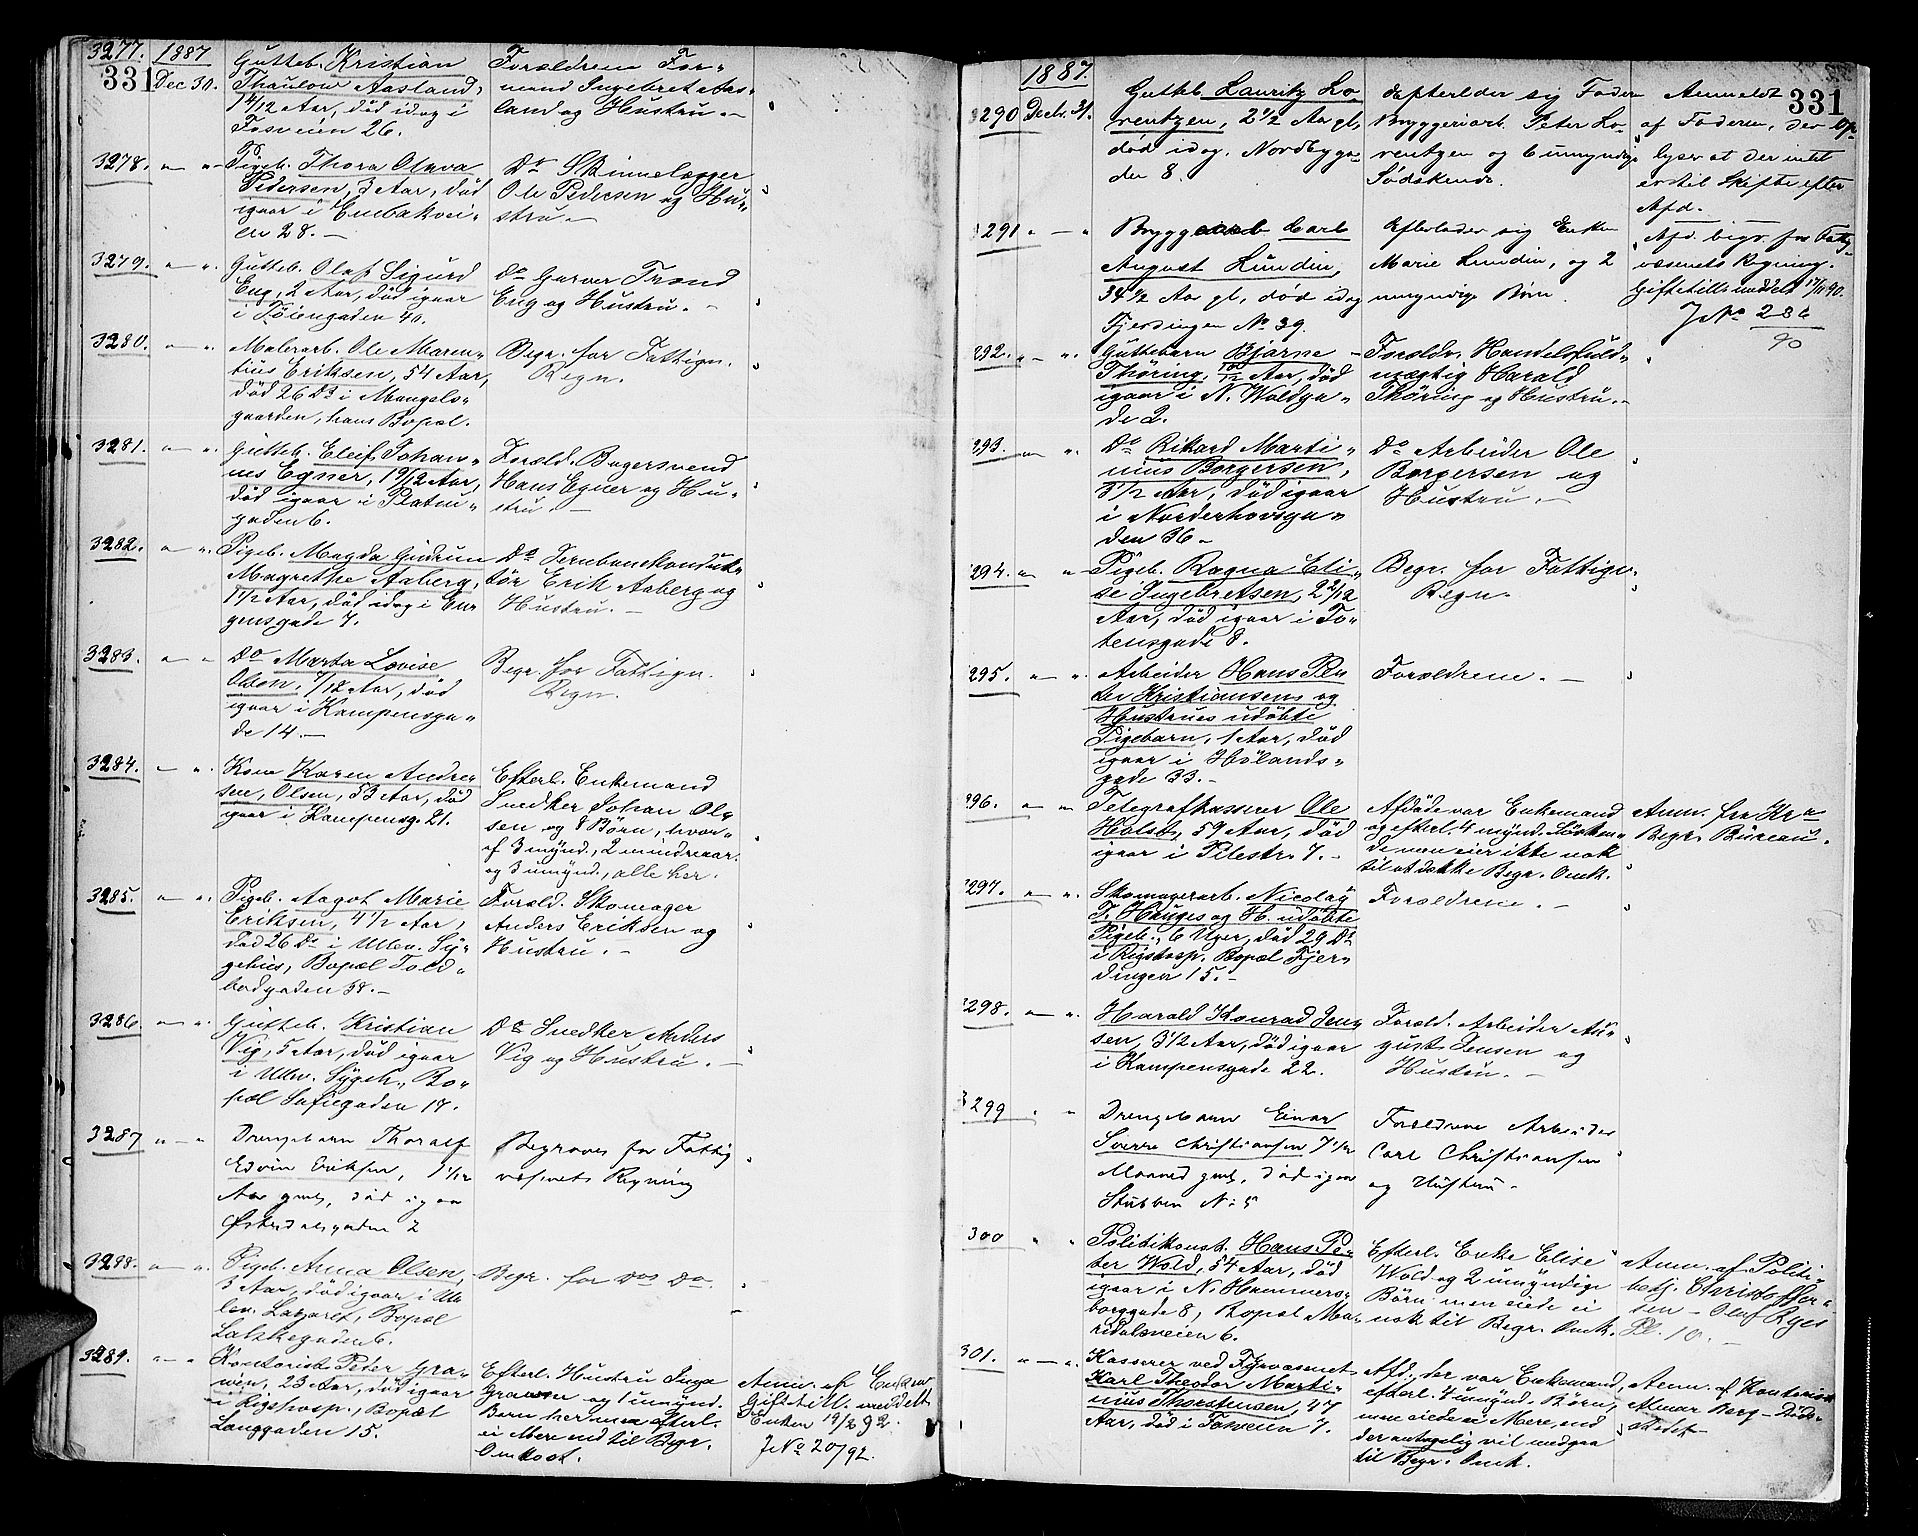 331
3277. 1887 Dec 30. Gutteb. Kristian
Thaulow Aasland,
1 4/12 Aar, död idag i
Fosveien 26.
Forældrene For-
mand Ingebret Aas-
land og Hustru. -
3278. " - " Pigeb. Thora Olava
Pedersen, 3 Aar, död
igaar i Enebakvei-
en 28. -
Do Skinnelægger
Ole Pedersen og Hu-
stru. -
3279. " - " Gutteb. Olaf Sigurd
Eng, 2 Aar, död igaar
i Töiengaden 40.
Do Garver Trond
Eng og Hustru. -
3280. " - " Malerarb. Ole Maren-
tius Eriksen, 54 Aar,
död 26 Ds i Mangels-
gaarden, hans Bopæl.
Begr. for Fattigv.
Regn.
3281. " - " Gutteb. Eleif Johan-
nes Egner, 1 9/12 Aar,
död igaar i Platou-
gaden 6.
Foræld. Bagersvend
Hans Egner og Hu-
stru. -
3282. " - " Pigeb. Magda Gudrun
Magrethe Aaberg,
1 1/2 Aar, död idag i Eu-
gensgade 7.
Do Jernbanekonduk-
tör Erik Aaberg og
Hustru. -
3283. " - " Do Marta Lovise
Olson, 7/12 Aar, död
igaar i Kampensga-
de 14. -
Begr. for Fattigv.
Regn.
3284. " - " Kone Karen Andre-
sen, Olsen, 53 Aar, död
igaar i Kampensg. 21.
Efterl. Enkemand
Snedker Johan Ol-
sen og 8 Börn, hvor-
af 3 mynd., 2 mindreaar.
og 3 umynd., alle her.
3285. " - " Pigeb. Aagot Marie
Eriksen, 4 1/2 Aar,
död 26 Ds i Ullev. Sy-
gehus, Bopæl Told-
bodgaden 38. -
Foræld. Skomager
Anders Eriksen og
Hustru. -
3286. " - " Gutteb. Kristian
Vig, 5 Aar, död igaar
i Ullev. Sygeh., Bo-
pæl Sofiegaden 17.
Do Snedker Anders
Vig og Hustru. -
3287 " - " Drengebarn Thoralf
Edvin Eriksen, 1 1/12
Aar gml, död igaar
Østerdalsgaden 2
Begraves for Fattig
væsenets Regning
3288. " - " Pigeb. Anna Olsen,
3 Aar, död igaar i Ul-
lev. Lazaret, Bopæl
Lakkegaden 6.
Begr. for Dos Do.
3289. " - " Kontorist Peter Gra-
nen, 23 Aar, död igaar
i Rigshosp., Bopæl
Langgaden 15.
Efterl. Hustru Inga
Granen og 1 umynd.
Barn her men efterl.
ei Mere end til Begr.
Omkost.
Anm. af Enken
Giftetill. meddelt
Enken 19/2 92.
J No 20/92.
331
1887.
3290 Decbr. 31. Gutteb. Lauritz Lo-
rentzen, 2 1/2 Aar gl,
död idag. Nordbyga-
den 8.
efterlader sig Fader
Bryggeriarb. Peter Lo-
rentzen og 6 umyndige
Södskende.
Anmeldt
af Faderen, der op-
lyser at der intet
er til Skifte efter
Afd.
3291 " - " Bryggeriarb Carl
August Lundin,
34 1/2 Aar gl, död idag
Fjerdingen No 39.
Efterlader sig Enken
Marie Lundin, og 2
umyndige Börn.
Afd. begr. for Fattig-
væsenets Regning.
Giftetill. meddelt 17/11 90.
J No 286/90
292. " - " Guttebarn Bjarne
Thöring, 10/12 Aar, död
igaar i N. Waldga-
de 2.
Foræld. Handelsfuld-
mægtig Harald
Thöring og Hustru. -
293. " - " Do Rikard Marti-
nius Borgersen,
3 1/2 Aar, död igaar
i Norderhovsga-
den 36 -
Do Arbeider Ole
Borgersen og
Hustru. -
294. " - " Pigeb. Ragna Eli-
se Ingebretsen, 2 2/12
Aar, död igaar i To-
tensgade 8.
Begr. for Fattigv.
Regn.
295. " - " Arbeider Hans Pet-
ter Kristiansens og
Hustrues udöbte
Pigebarn, 1 Aar, död
igaar i Hölands-
gade 33. -
Forældrene. -
296. " - " Telegrafkasserer Ole
Holst, 59 Aar, död
igaar i Pilestr. 7. -
Afdöde var Enkemand
og efterl. 4 mynd. Södsken-
de men eier ikke nok
til at dække Begr. Omk.
Anm. fra Kra
Begr. Büreau.
297. " - " Skomagerarb. Nicolay
F. Hauges og H. udöbte
Pigeb., 6 Uger, död 29 Ds
i Rigshosp. Bopæl Fjer-
dingen 15. -
Forældrene. -
3298. " - " Harald Konrad Jen-
sen, 3 1/2 Aar, död igaar
i Kampensgade 22.
Foræld. Arbeider Au-
gust Jensen og
Hustru. -
3299 " " Drengebarn Einar
Sverre Christiansen 7 1/2
Maaned gml, död igaar
Stubben No 5
Forældrene Arbeider
Carl Christiansen
og Hustru.
300 " " Politikonst. Hans Pe-
ter Wold, 54 Aar, död
igaar i N. Hammers-
borggade 8, Bopæl Ma-
ridalsveien 6.
Efterl. Enke Elise
Wold og 2 umyndige
Börn men eiede ei
nok til Begr. Omk.
Anm. af Politi-
betj. Christoffer-
sen - Olaf Ryes
Pl. 10. -
301. " - " Kasserer ved Fyrvæsenet
Karl Theodor Marti-
nius Thorstensen, 47
Aar, död i Fosveien 7.
Afd. der var Enkemand,
efterl. 4 umynd. Börn,
men eiede ei Mere, end
der antagelig vil medgaa
til Begr. Omk.
Anm. af Kontorist
Almar Berg - Döds-
stedet -